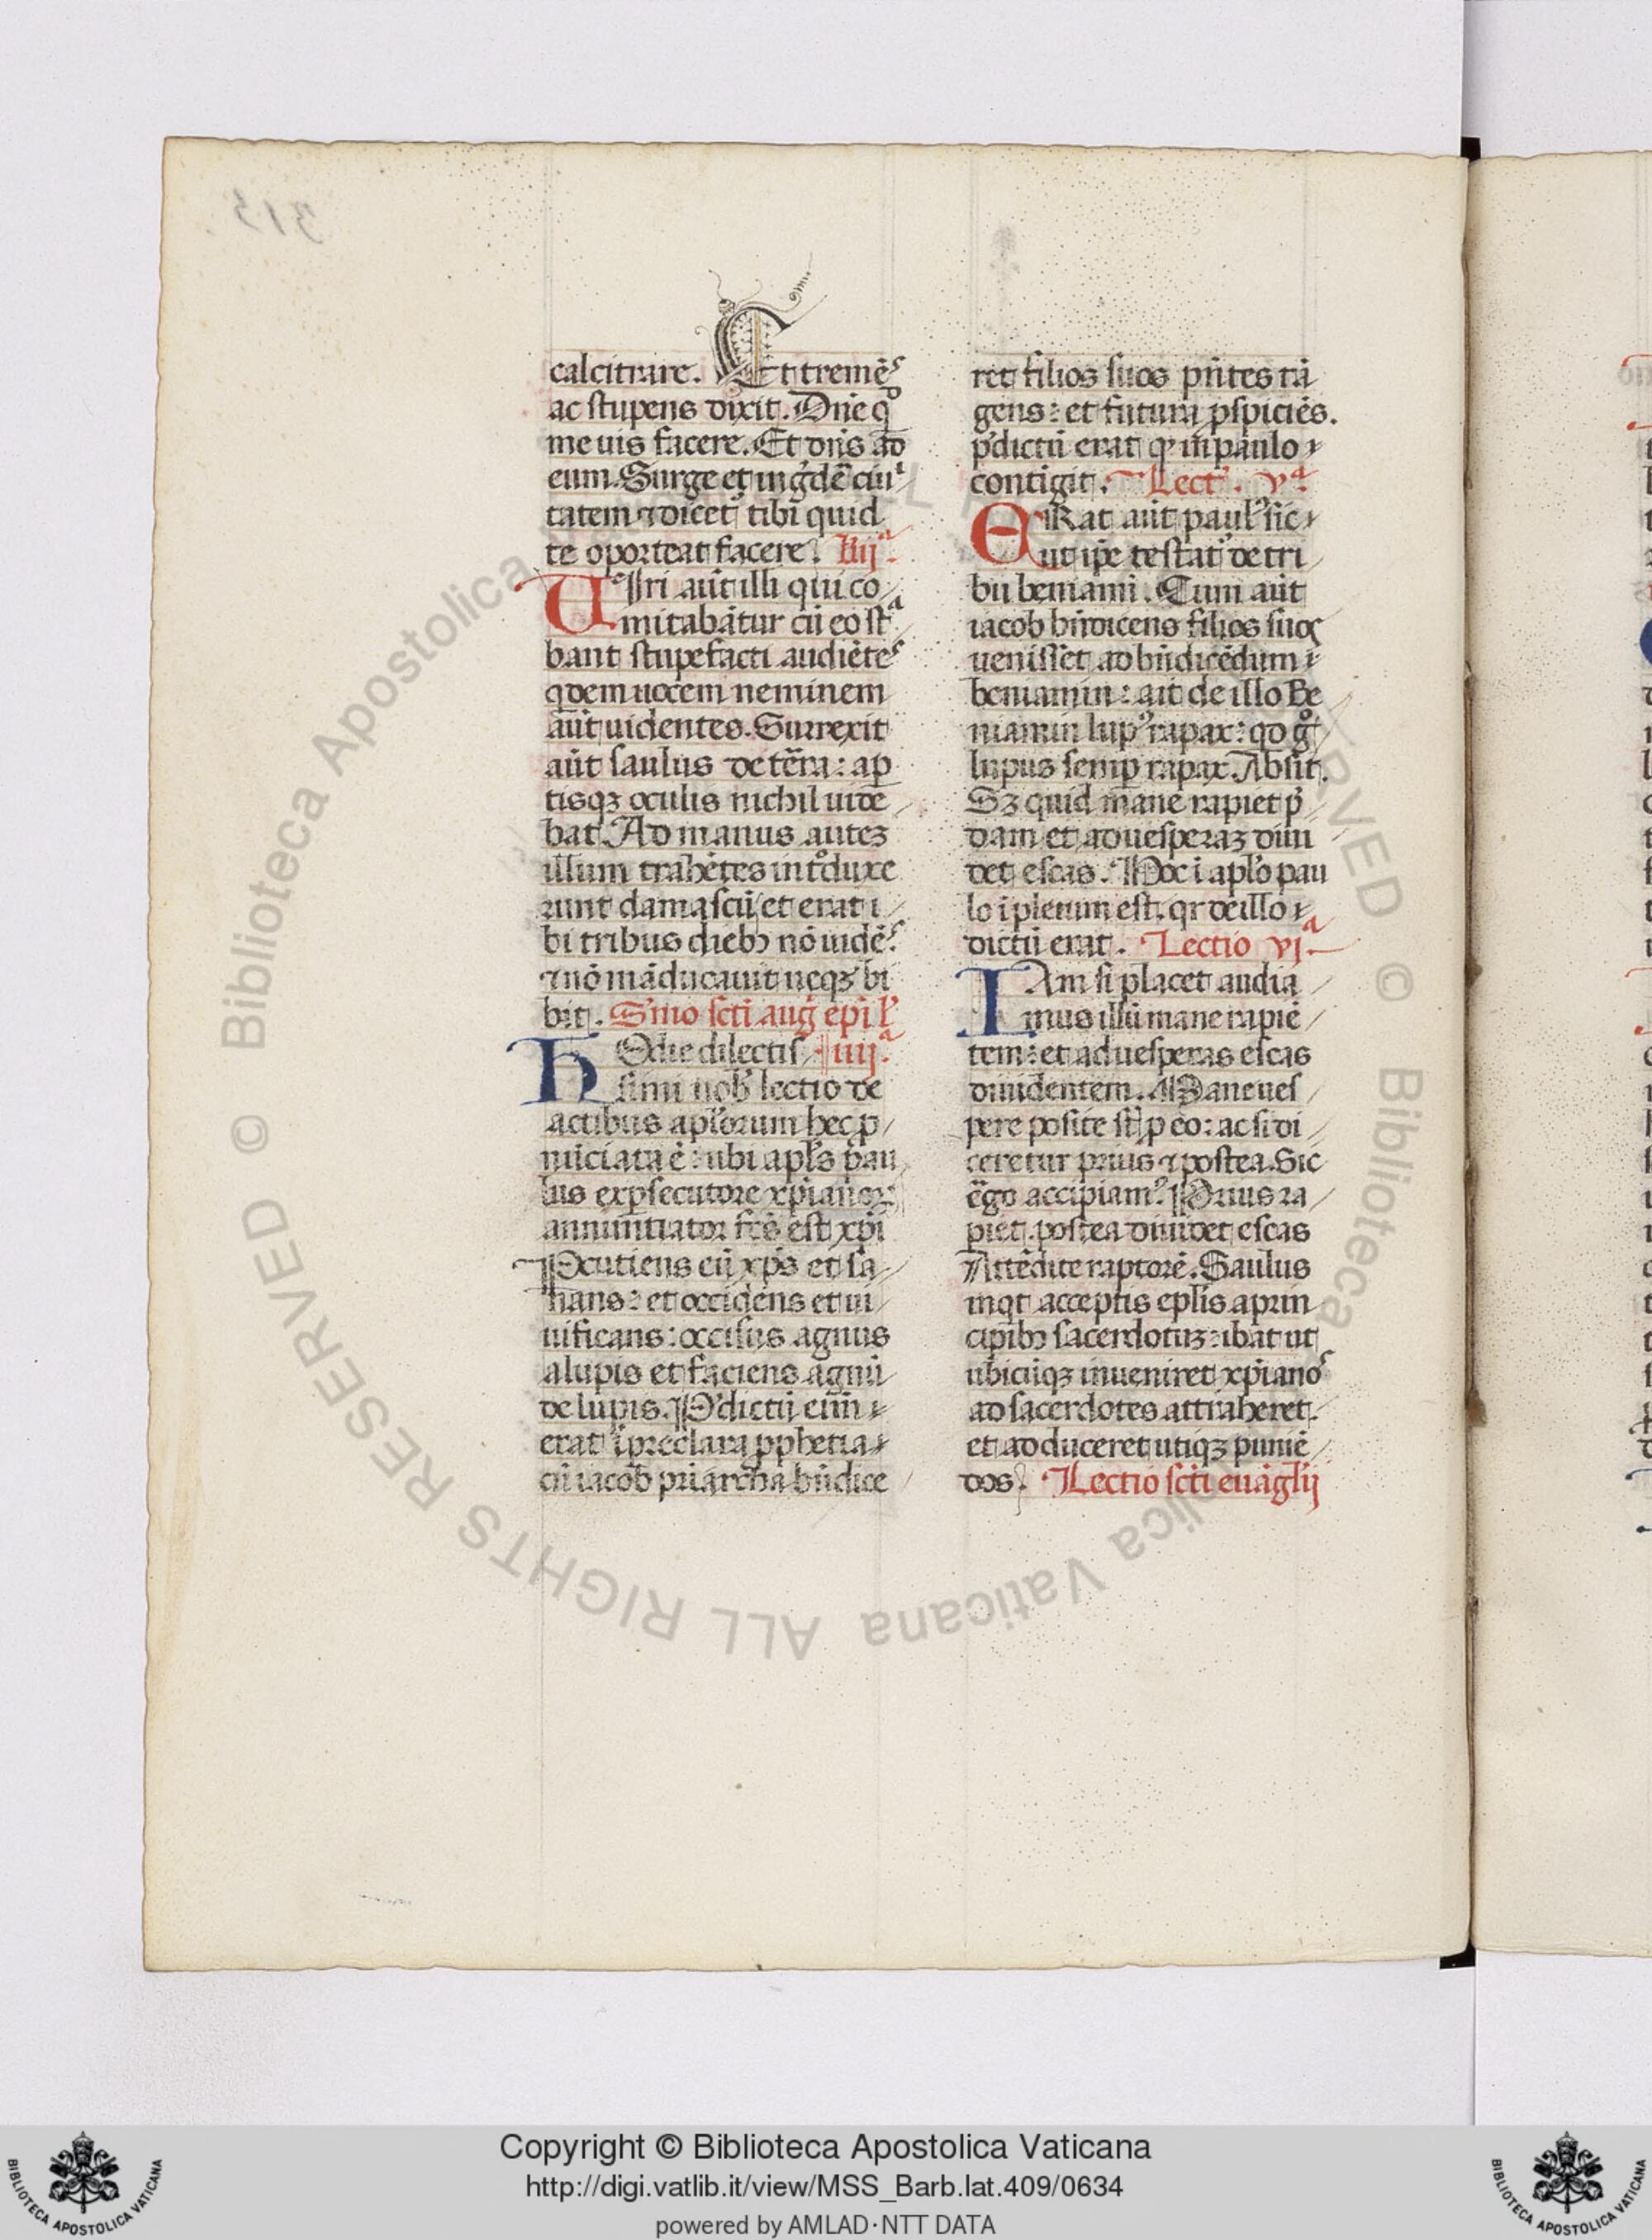 calcitrare. Et tremēs
ac stupens dixit. Dn̄e qͦ
me uis facere. Et dn̄s ad
eum. Surge et ingͥdē ciuͥ
tatem ⁊ dicet tibi quid
te oporteat facere. Lᵒ iijᵃ.
UIri aūt illi qui co
mitabātur cū eo stᵃ
bant stupefacti audiētes
qͥdem uocem neminem
aūt uidentes. Surrexit
aūt saulus de tēra: aꝑ
tisqꝫ oculis nichil uide
bat. Ad manus auteꝫ
illum trahētes intͦduxe
runt damascū et erat i
bi tribus diebꝰ nō uidēs
⁊ nō māducauit neqꝫ bi
bit. Sͬmo scī auḡ ep̄i l̄ᵒ
HOdie dilectis iiijᵃ.
simi nob̄ lectio de
actibus apl̄orum hec ꝓ
nūciata ē: ubi apl̄s pau
lus ex ꝑsecutore xp̄ianoꝝ
annuntiator fcs̄ est xp̄i
Pcutiens eū xp̄s et sa
nans: et occidens et ui
uificans: occisus agnus
a lupis et faciens agnū
de lupis. Pͬdictū eni᷒m
erat ī preclara ꝓphetia
cū iacob pr̄iarcha bn̄dice
ret filios suos pn̄tes tā
gens: et futura ꝓspiciēs.
pͬdictū erat qͩ in paulo
contigit. Lectͦ. vᵃ.
ERat aūt paulꝰ sic
ut ip̄e testatͬ de tri
bu beniami. Cum aūt
iacob bn̄dicens filios suos
uenisset ad bn̄dicēdum
beniamin: ait de illo Be
niamin lupꝰ rapax: qd gͦ
lupus semꝑ rapax. Absit.
Sꝫ quid mane rapiet pͬ
dam et ad uesperaꝫ diui
det escas. Hoc ī aplō pau
lo īpletum est. qr de illo
dictū erat. Lectio vjᵃ.
IAm si placet audia
mus illū mane rapiē
tem: et ad uesperas escas
diuidentem. Mane ues
pere posite st̄ ꝓ eo: ac si di
ceretur prius ⁊ postea. Sic
ergo accipiamꝰ. Prius ra
piet. postea diuidet escas
Attēdite raptorē. Saulus
inqͥt acceptis epl̄is a prin
cipibꝰ sacerdotuꝫ: ibat ut
ubicūqꝫ inueniret xp̄ianos
ad sacerdotes attraheret.
et adduceret utiqꝫ puniē
dos. Lectio scī euāgl̄ij
313
© Biblioteca Apostolica Vaticana ALL RIGHTS RESERVED
Copyright © Biblioteca Apostolica Vaticana
http://digi.vatlib.it/view/MSS_Barb.lat.409/0634
powered by AMLAD·NTT DATA
BIBLIOTECA APOSTOLICA VATICANA
BIBLIOTECA APOSTOLICA VATICANA